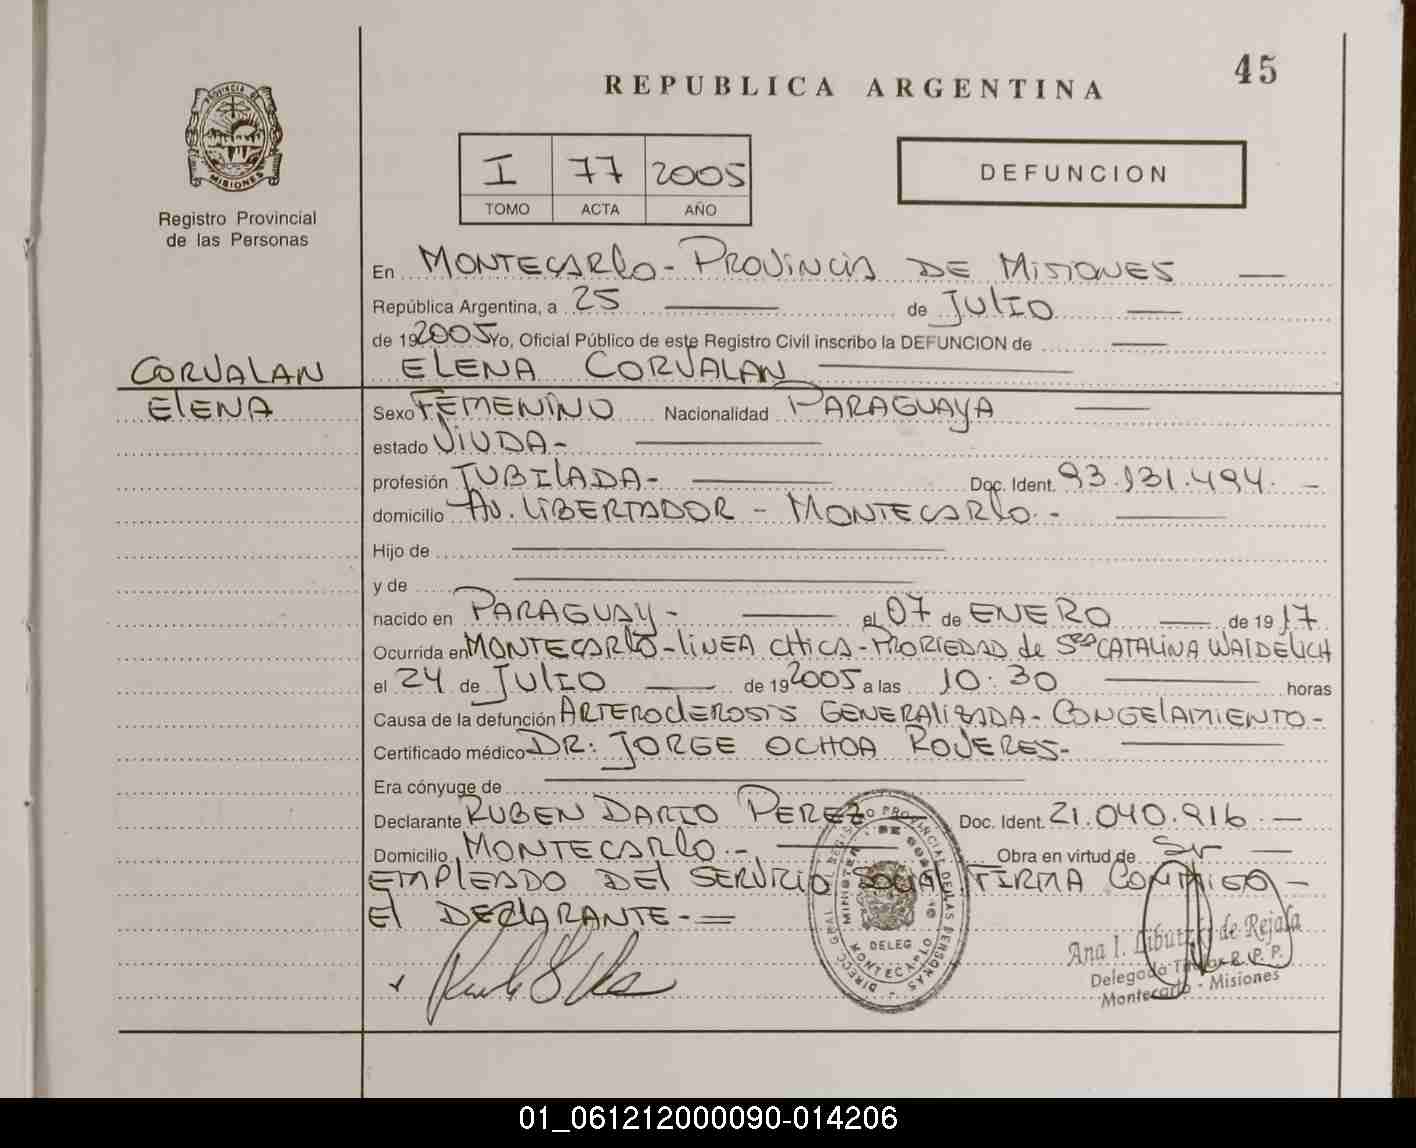 45
REPUBLICA ARGENTINA
PROVINCIA DE
MISIONES
Registro Provincial
de las Personas
I 77 2005
TOMO ACTA AÑO
DEFUNCION
En MONTECARLO - PROVINCIA DE MISIONES
República Argentina, a 25 de JULIO
de 192005 Yo, Oficial Público de este Registro Civil inscribo la DEFUNCION de
CORVALAN
ELENA CORVALAN
ELENA
Sexo FEMENINO Nacionalidad PARAGUAYA
estado VIUDA-
profesión JUBILADA- Doc. Ident. 93.131.494. -
domicilio AV. LIBERTADOR - MONTECARLO.-
Hijo de
y de
nacido en PARAGUAY- el 07 de ENERO de 1917
Ocurrida en MONTECARLO-LINEA CHICA-PROPIEDAD de Sra CATALINA WAIDELICH
el 24 de JULIO de 192005 a las 10:30 horas
Causa de la defunción ARTEROCLEROSIS GENERALIZADA- CONGELAMIENTO-
Certificado médico DR: JORGE OCHOA ROVERES-
Era cónyuge de
Declarante RUBEN DARIO PEREZ Doc. Ident. 21.040.916. -
Domicilio MONTECARLO.- Obra en virtud de Sr
EMPLEADO DEL SERVICIO SOCIAL FIRMA CONMIGO-
El DECLARANTE-
DIRECC. GRAL. REGISTRO PROVINCIAL DE LAS PERSONAS
DELEG
MONTECARLO
Ana I. de Rejala
Delegada Titular R. P. P.
Montecarlo - Misiones
01_061212000090-014206